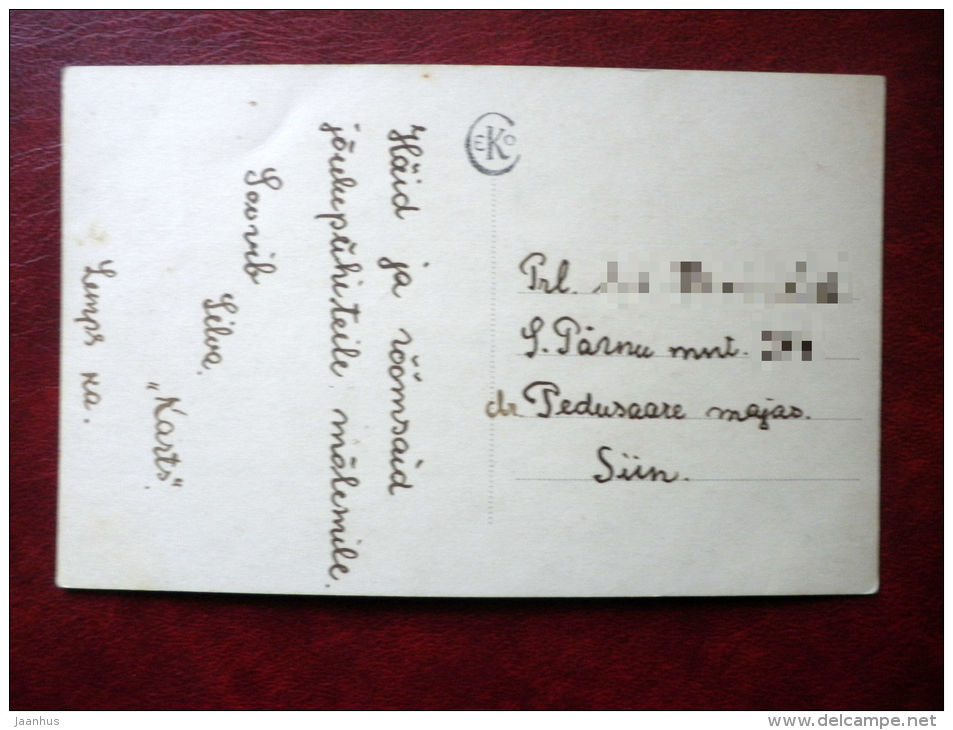 Häid ja rõõmsaid
jõulupühiteile mõlemile.
Soovib
Silva.
"Karts"
Lemps ka.
EKO
Prl.
S. Pärnu mnt.
dr. Pedusaare majas.
Siin.
jaanhus
www.delcampe.net